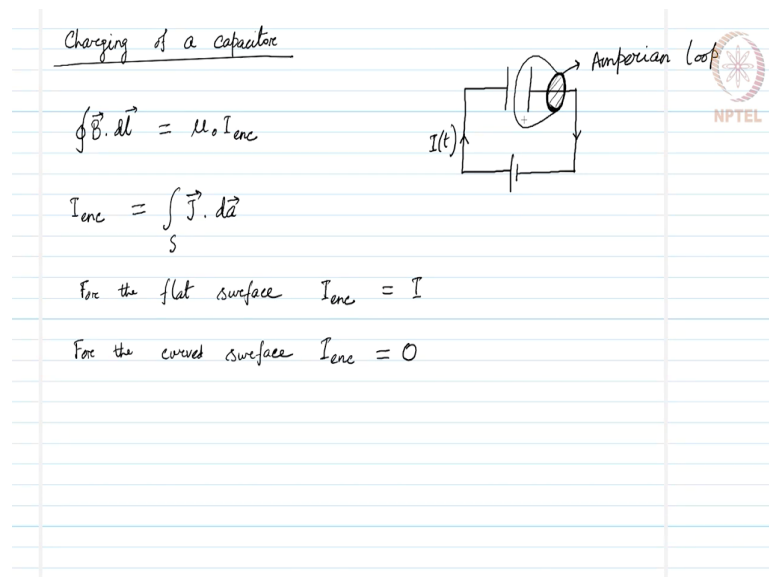 Charging of a capacitor
Amperian loop
NPTEL
I(t)
∮B⃗.dl⃗ = μ₀ I_enc
I_enc = ∫_S J⃗.da⃗
For the flat surface I_enc = I
For the curved surface I_enc = 0